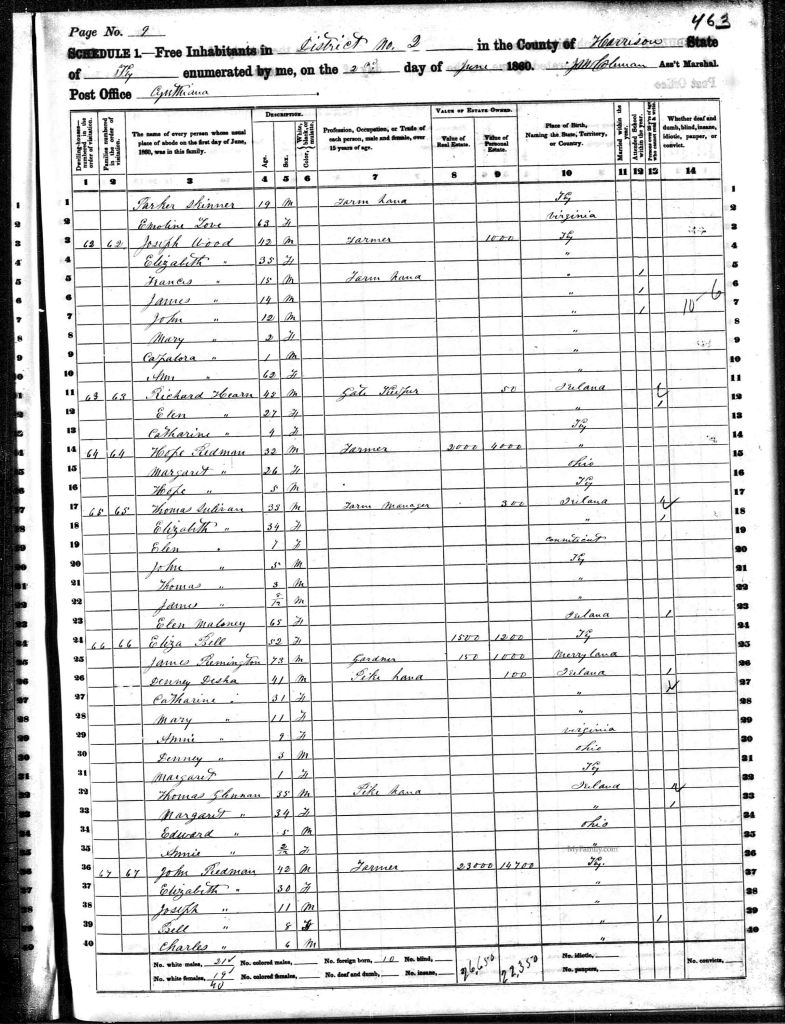 463
Page No. 9
SCHEDULE 1.—Free Inhabitants in District No. 2 in the County of Harrison State
of Ky enumerated by me, on the 2 day of June 1860. Ass't Marshal.
Post Office Cynthiana
Dwelling-houses—numbered in the order of visitation.
Families numbered in the order of visitation.
The name of every person whose usual place of abode on the first day of June, 1860, was in this family.
DESCRIPTION.
Age.
Sex.
Color, White, black, or mulatto.
Profession, Occupation, or Trade of each person, male and female, over 15 years of age.
VALUE OF ESTATE OWNED.
Value of Real Estate.
Value of Personal Estate.
Place of Birth, Naming the State, Territory, or Country.
Married within the year.
Attended School within the year.
Persons over 20 years of age who cannot read & write.
Whether deaf and dumb, blind, insane, idiotic, pauper, or convict.
1 2 3 4 5 6 7 8 9 10 11 12 13 14
1 Parker Skinner 19 M Farm hand Ky 1
2 Emoline Love 63 F Virginia 2
3 62 62 Joseph Wood 42 M Farmer 1000 Ky 3
4 Elizabeth " 35 F " 4
5 Francis " 15 M Farm hand " 1 5
6 James " 14 M " 1 6
7 John " 12 M " 1 10-6 7
8 Mary " 2 F " 8
9 " 1 M " 9
10 Ann " 62 F " 10
11 63 63 Richard Hearn 48 M Gate Keeper 50 Ireland 11
12 Elen " 27 F " 1 12
13 Catharine " 4 F Ky 13
14 64 64 Hope Redman 32 M Farmer 2000 4000 " 14
15 Margaret " 26 F Ohio 15
16 Hope " 5 M Ky 16
17 65 65 Thomas Sulivan 38 M Farm Manager 300 Ireland 17
18 Elizabeth " 34 F " 1 18
19 Elen " 7 F Conniticut 19
20 John " 5 M Ky 20
21 Thomas " 3 M " 21
22 James " M " 22
23 Elen Maloney 65 F Ireland 1 23
24 66 66 Eliza Bell 52 F 1500 1200 Ky 24
25 James Remington 73 M Gardner 150 1000 Merryland 25
26 Denney Desha 41 M Pike hand 100 Ireland 1 26
27 Catharine " 31 F " 27
28 Mary " 11 F " 28
29 Annie " 9 F Virginia 29
30 Denney " 3 M Ohio 30
31 Margaret " 1 F Ky 31
32 Thomas Glennan 38 M Pike hand Ireland 32
33 Margaret " 34 F " 1 33
34 Edward " 5 M Ohio 34
35 Annie " F " 35
36 67 67 John Redman 42 M Farmer 23000 14700 Ky. 36
37 Elizabeth " 30 F 37
38 Joseph " 11 M 38
39 Bell " 8 F " 1 39
40 Charles " 6 M " 40
MyFamily.com
No. white males, 21 No. colored males, No. foreign born, 10 No. blind, 26,650 22,350 No. idiotic, No. convicts,
No. white females, 19 No. colored females, No. deaf and dumb, No. insane, No. paupers,
40